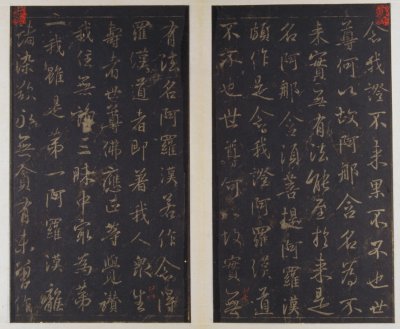 念我證不来果不不也世
尊何以故阿那含名為不
来實無有法能至於来是
名阿那含須菩提阿羅漢
頗作是念我證阿羅漢道
不不也世尊何以故實無
有法名阿羅漢若作念得
羅漢道者即著我人衆生
壽者世尊佛應正等覺讚
我住無諍三昧中最為第
一我雖是第一阿羅漢離
諸染欲永無貪有未曾作